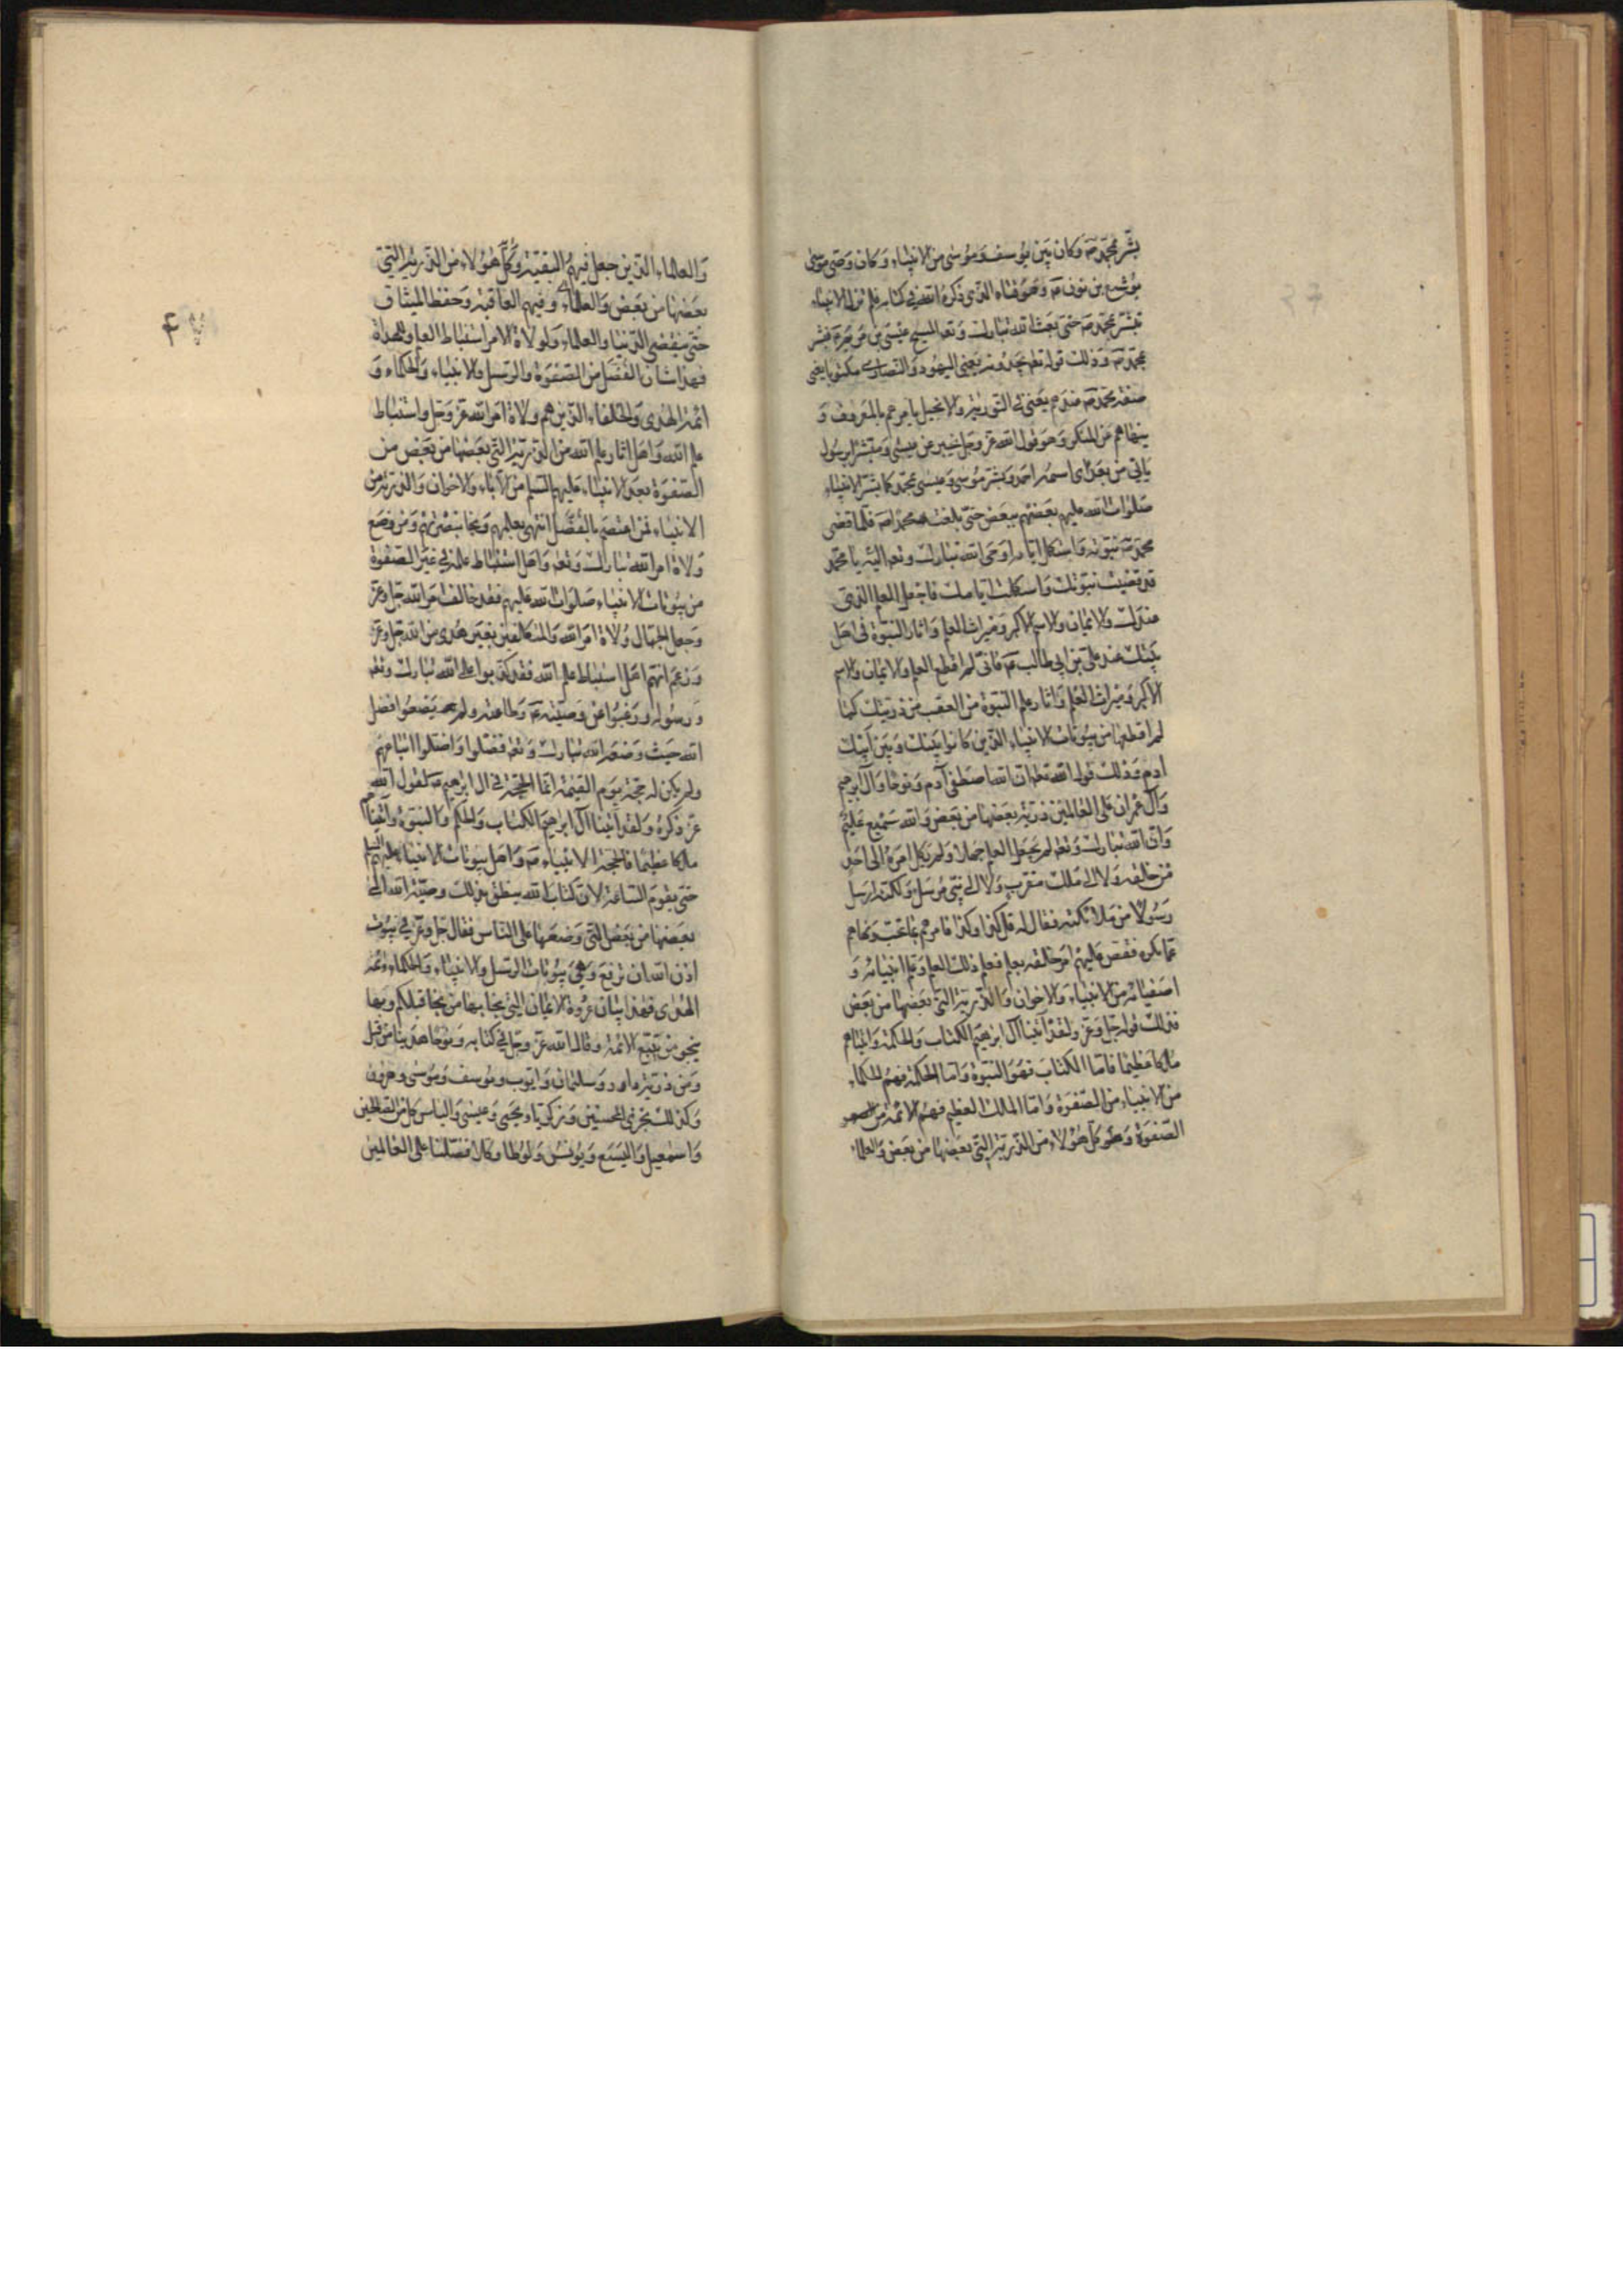 بشّر بمحمّد صَ وَكان بَين يوُسفَ وَموُسى من الانبيَاء وَكان وَصى موسى
يوُشع بن نون عَ وَهوَ فتاه الذى ذكرهُ الله فى كتابه فلم تزل الانبياء
تبشر بمحمّد صَ حتى بعث الله تبارك وَتعَ المسيح عيسى بن مَريَم فبشر
بمحمّد صَ وَذلك قوله تعَ يجدُونه يَعنى اليهود وَالنصارى مكتوبا يعنى
صفة محمّد صَ عندهم يَعنى فى التوريٰة والانجيل يامرهم بالمعَروف وَ
ينهاهم عَن المنكر وَهوَ قول الله عزّ وجلّ يخبر عن عيسى وَمبشّرا برسُول
يَاتى من بعَدى اسمه احمد وَبشّر مُوسى وَعيسى بمحمّد كما بشّر الانبياء
صَلوات الله عليهم بعَضهم ببعض حتى بلغت محمّدا صَ فلمّا قضى
محمّد صَ نبوّته وَاستكمل ايّامه اوحَى الله تبارك وَتعَ اليه يا محمّد
قد قضيت نبوّتك وَاستكملت ايّامك فاجعَل العلم الذى
عندك وَالايمان والاسم الاكبر وَميراث العلم وَاثار النبوّة فى اهل
بيَتك عند على بن ابى طالب عَ فانّى لم اقطع العلم والايمان والاسم
الاكبر وَميراث العلم وَاثار علم النبوّة من العَقب من ذريّتك كما
لم اقطعها من بيُوتات الانبياء الذين كانوا بيَنك وَبيَن ابيك
ادم وَذلك قول الله تعَ ان الله اصطفى آدم وَنوحا وَآل ابرهيم
وَآل عمران على العالمين ذريّة بعَضها من بعض وَالله سَميع عَليم
وَانّ الله تبارك وَتعَ لم يجَعل العلم جهلا وَلم يكل امرهُ الى احَد
من خلقه وَلا الى ملك مقرب وَلا الى نبى مرسَل وَلكنه ارسَل
رَسُولا من ملائكته فقال له قل كذا وَكذا فامرهم بما يحبّ وَنهاهم
عما يكره فقصّ عَليهم امر خلقه بعلم فعلم ذلك العلم وَعلّم انبيائه وَ
اصفيائه من الانبياء وَالاخوان وَالذريّة التى بعَضها من بعَض
فذلك قوله جلّ وَعزّ ولقد آتينا آل ابرهيم الكتاب وَالحكمة وَاتيناهم
مُلكا عَظيما فامّا الكتابَ فهوَ النبوّة وَامّا الحكمة فهم الحكماء
من الانبياء من الصّفوة وَامّا الملك العظيم فهم الائمّة من
الصّفوَة وَكل هؤلاء من الذريّة التى بعَضها من بعَض وَالعلماء
وَالعلماء الذين جعل فيهم البقيّة وَكلّ هؤلاء من الذريّة التى
بعَضها من بعَض وَالعلماء وفيهم العاقبة وَحفظ الميثاق
حتى ينقضى الدّنيا والعلماء وَلولاة الامر استنباط العلم وَللهداة
فهذا شان الفُضّل من الصّفوة والرّسل والانبياء وَالحكماء وَ
ائمّة الهدى وَالخلفاء الذين هم وَلاة امر الله عزّ وَجلّ واستنباط
علم الله وَاهل اثار علم الله من الذرّية التى بعَضها من بَعض من
الصّفوَة بعَد الانبياء عليهم السّلم من الاباء وَالاخوان وَالذريّة من
الانبياء فمن اعتصَم بالفُضّل انتهى بعلمهم وَنجا بنصرتهم وَمن وضع
وَلاة امر الله تبارك وَتعَ وَاهل استنباط علمه فى غير الصّفوة
من بيُوتات الانبياء صَلوَات الله عليهم فقد خالف امَر الله جلّ وعزّ
وَجعل الجهّال وُلاة امرَ الله وَالمتكلفين بغير هدى من الله جلّ وعزّ
وَزعَم انهم اهل استنباط علم الله فقد كذبوا على الله تبارك وتعَ
وَرسُوله وَرغبُوا عن وَصيّته عَ وَطاعته ولم يضعُوا فضل
الله حيث وَضعَه الله تبارك وَتعَ فضلوا وَاضلوا اتباعهم
ولم يكن له حجّة يوَم القيمة انّما الحجّة فى ال ابرهيم عَ لقول الله
عزّ ذكرهُ وَلقد آتينا آل ابرهيم الكتاب والحكم وَالنبوّة وآتيناهم
ملكا عظيما فالحجّة الانبياء صَ وَاهل بيوتات الانبياء عليهم السّلم
حتى يقوم السّاعة لان كتاب الله ينطق بذلك وصيّة الله التى
بعَضها من بعَض التى وَضعَها على الناس فقال جلّ وَعزّ فى بيُوت
اذن الله ان ترفع وَهى بيُوتات الرسل وَالانبياء وَالحكماء وَائمّة
الهدى فهذا بيان عروة الايمان التى نجا بها من نجا قبلكم وبها
ينجو من يتّبع الائمة وَقال الله عزّ وجلّ فى كتابه وَنوحا هدَينا من قبل
وَمن ذريّته داود وَسليمان وَايّوب ويوسف وَموسى وَهرون
وَكذلك نجزى المحسنين وَزكريّا وَيحيى وَعيسى وَالياس كل من الصّالحين
وَاسمعيل وَاليسَع وَيونس وَلوطا وكلا فضّلنا على العالمين